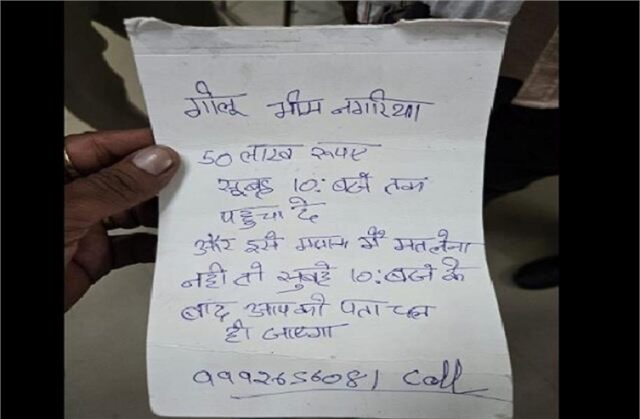 गोलू भीम नगरिया
50 लाख रूपए
सुबह 10: बजे तक
पहुचा दे
और इसे मजाक में मत लेना
नही तो सुबह 10: बजे के
बाद आपको पता चल
ही जाएगा
9992656081 Call